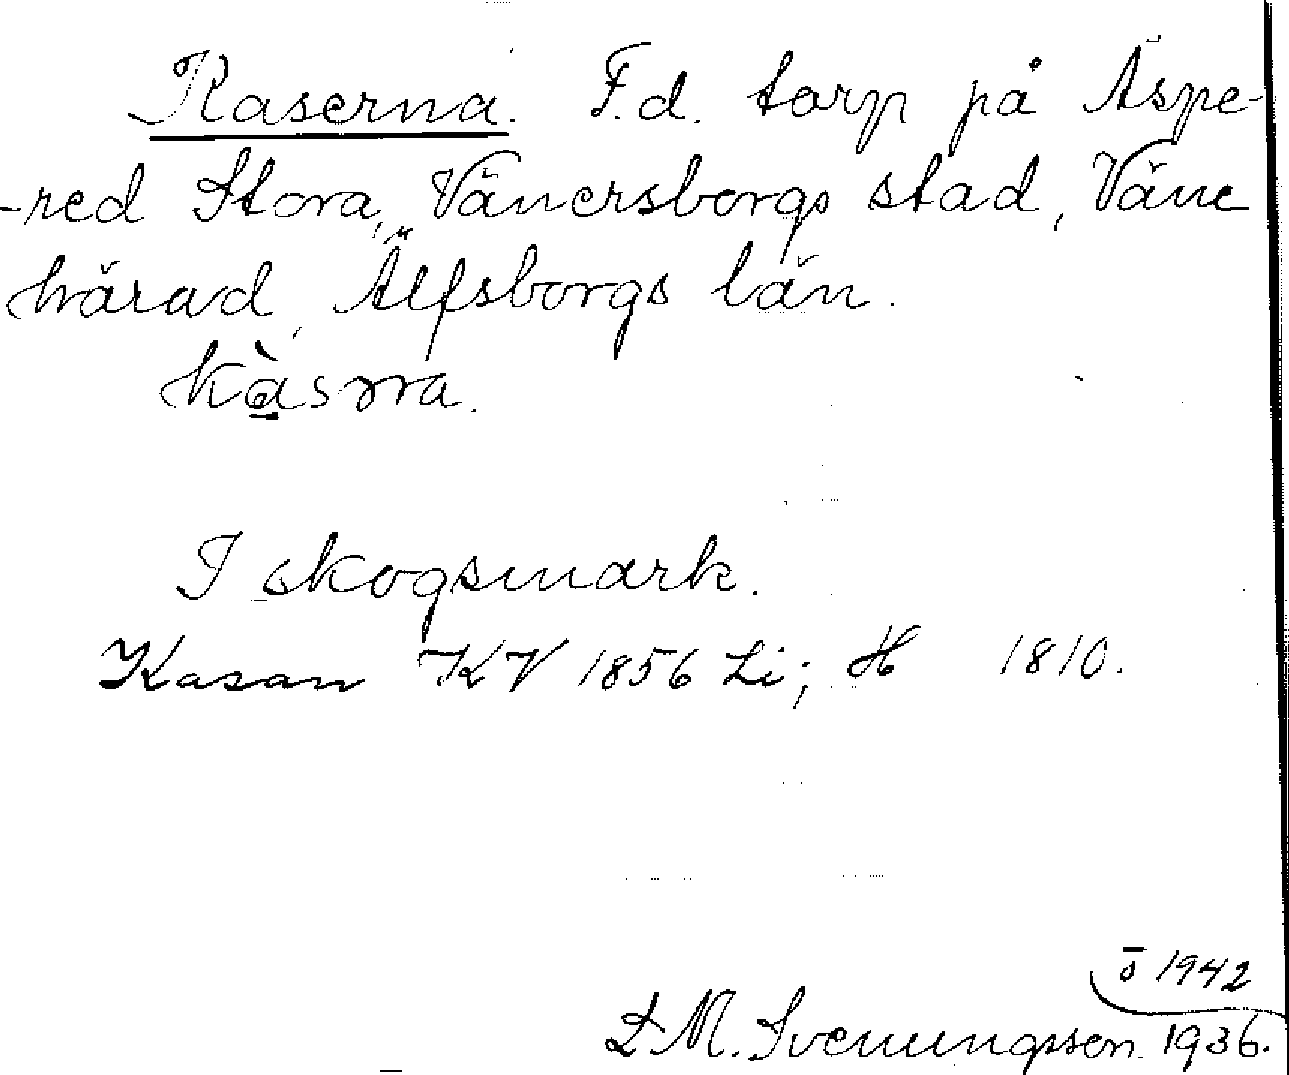 Kaserna. F.d. torp på Äspe-
-red Stora, Vänersborgs stad, Väne
härad, Älfsborgs län.
kàsṇa.
I skogsmark.
Kasan KV 1856 Li; H 1810.
ō 1942
D. M. Svenungsson 1936.